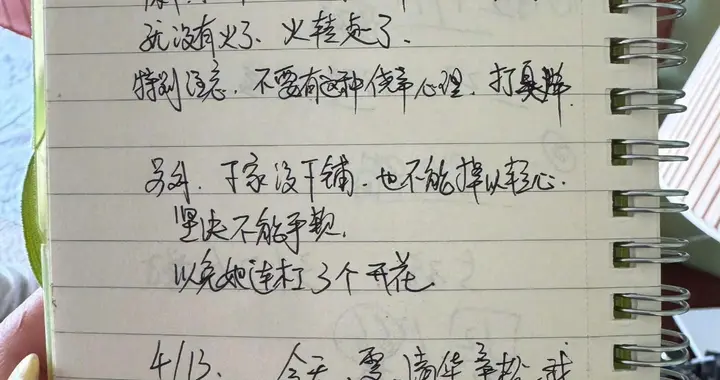 就没有火了、火转走了.
特别注意、不要有这种侥幸心理、打臭牌.
另外、下家没下铺、也不能掉以轻心.
坚决不能乎觊.
以免她连杠3个开花.
4/13、 今天、雪、清华 松、我